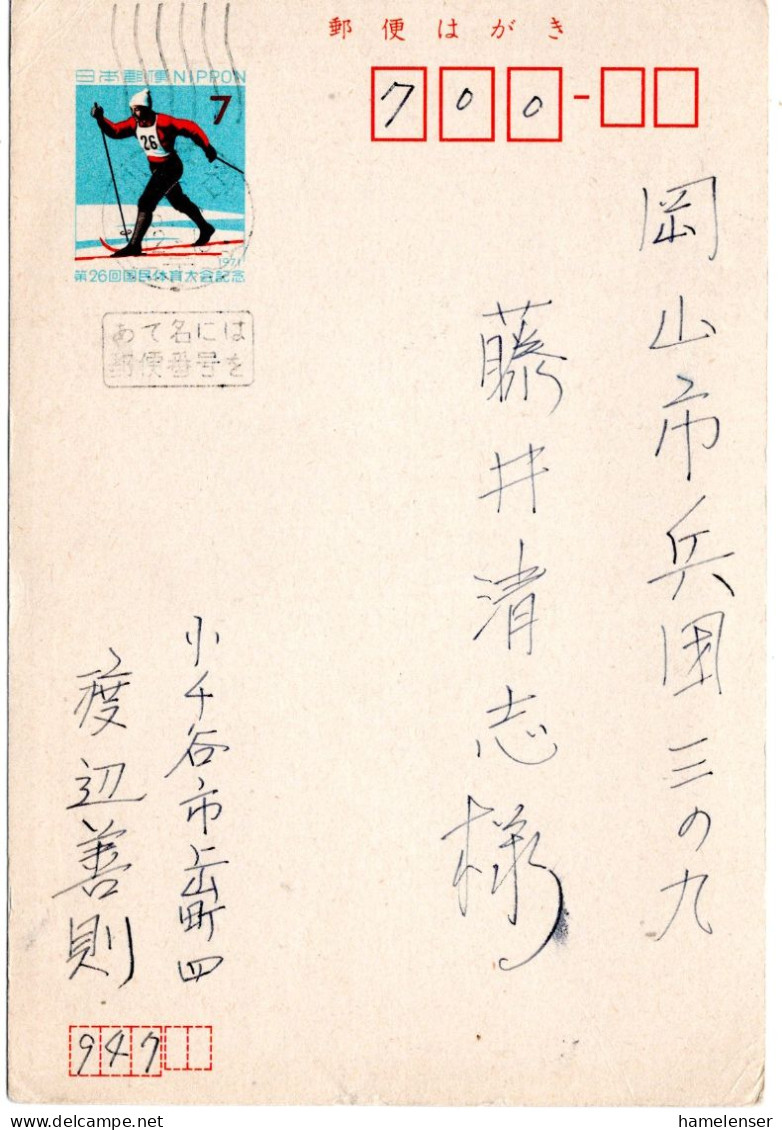 郵便はがき
日本郵便NIPPON
7
26
1971
第26回国民体育大会記念
700
あて名には
郵便番号を
岡山市兵団三の九
藤井清志様
小千谷市上山町四
渡辺善則
947
hamelenser